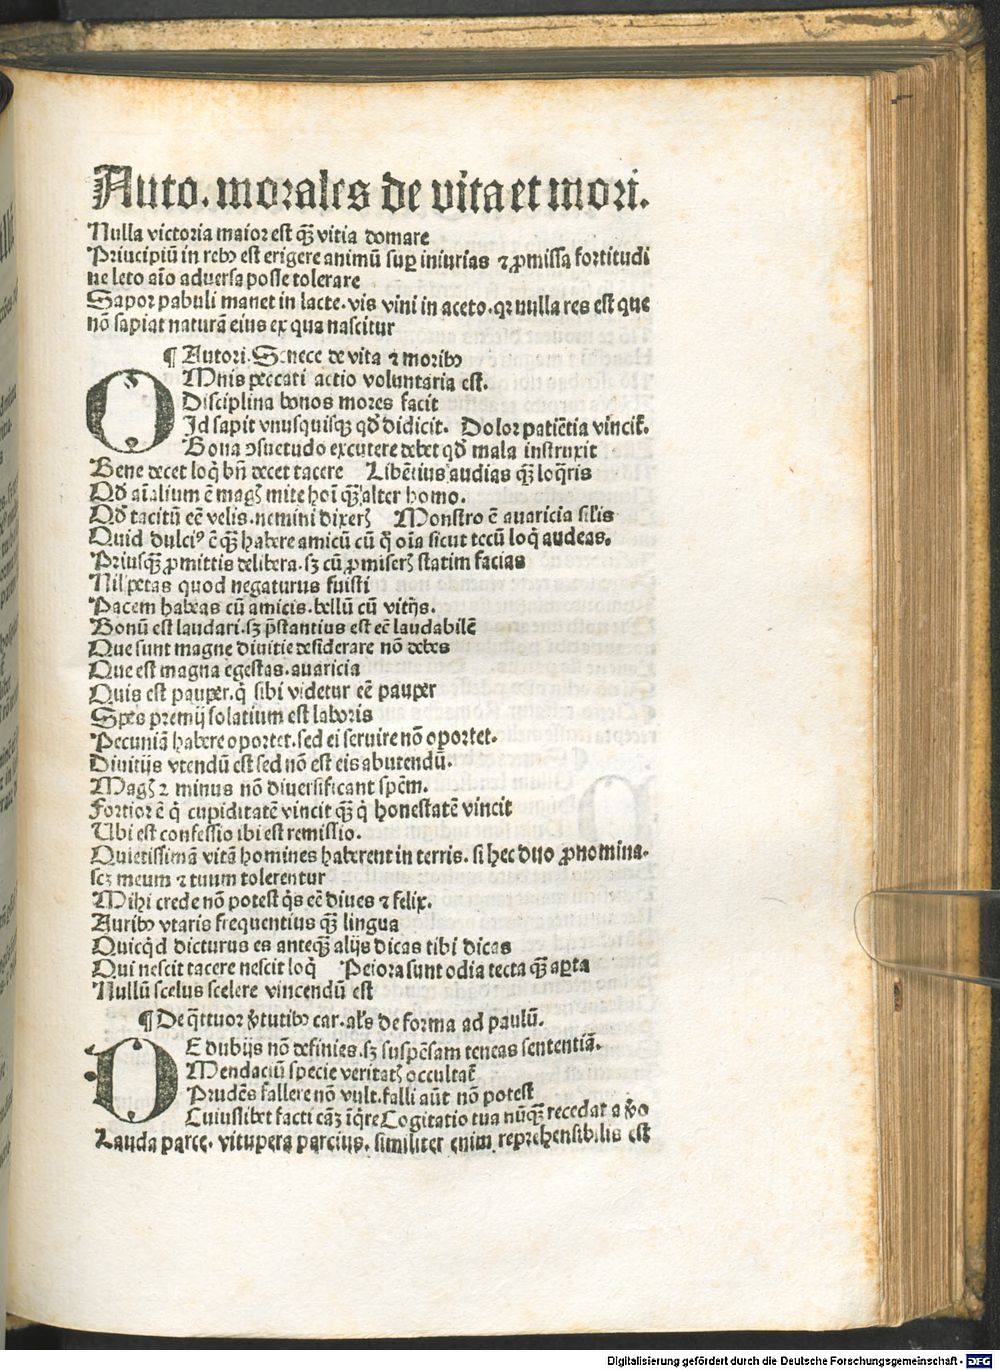 Auto. morales de vita et mori.
Nulla victoria maior est qꝫ vitia domare
Principiū in rebꝰ est erigere animū suꝑ iniurias ⁊ ꝓmissa fortitudi
ne leto aīo aduersa posse tolerare
Sapor pabuli manet in lacte. vis vini in aceto. qꝛ nulla res est que
nō sapiat naturā eius ex qua nascitur
¶ Autori. Senece de vita ⁊ moribꝰ
OMnis peccati actio voluntaria est.
Disciplina bonos mores facit
Id sapit vnusquisqꝫ qd̄ didicit. Dolor patiētia vincit̄.
Bona ↄsuetudo excutere debet qd̄ mala instruxit
Bene decet loq̄ bn̄ decet tacere Libētius audias qꝫ loq̄ris
Qd̄ aīalium ē magꝭ mite hoī qꝫ alter homo.
Qd̄ tacitū eē velis. nemini dixerꝭ Monstro ē auaricia silis
Quid dulciꝰ ē qꝫ habere amicū cū q̄ oīa sicut tecū loq̄ audeas.
Priusqꝫ ꝓmittis delibera. sꝫ cū ꝓmiserꝭ statim facias
Nil petas quod negaturus fuisti
Pacem habeas cū amicis. bellū cū vitijs.
Bonū est laudari. sꝫ p̄stantius est eē laudabilē
Que sunt magne diuitie desiderare nō debes
Que est magna egestas. auaricia
Quis est pauper. q̄ sibi videtur eē pauper
Spes premij solatium est laboris
Pecuniā habere oportet. sed ei seruire nō oportet.
Diuitijs vtendū est sed nō est eis abutendū.
Magꝭ ⁊ minus nō diuersificant spēm.
Fortior ē q̄ cupiditatē vincit qꝫ q̄ honestatē vincit
Ubi est confessio ibi est remissio.
Quietissimā vitā homines haberent in terris. si hec duo ꝓnomina.
scꝫ meum ⁊ tuum tolerentur
Mihi crede nō potest q̄s eē diues ⁊ felix.
Auribꝰ vtaris frequentius qꝫ lingua
Quicq̄d dicturus es anteqꝫ alijs dicas tibi dicas
Qui nescit tacere nescit loq̄ Peiora sunt odia tecta qꝫ aꝑta
Nullū scelus scelere vincendū est
¶ De q̄ttuor v̄tutibꝰ car. als̄ de forma ad paulū.
DE dubijs nō definies. sꝫ suspēsam teneas sententiā.
Mendaciū specie veritatꝭ occultat̄
Prudēs fallere nō vult. falli aūt nō potest
Cuiuslibet facti cāꝫ īq̄re Cogitatio tua nūqꝫ recedat a v̄o
Lauda parce. vitupera parcius. similiter enim reprehensibilis est
Digitalisierung gefördert durch die Deutsche Forschungsgemeinschaft - DFG